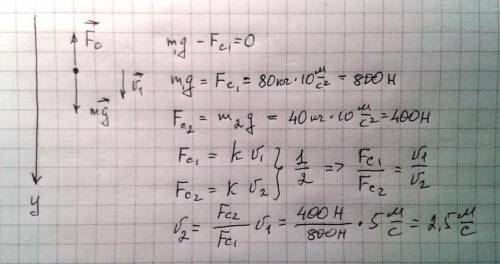 F⃗c
m⃗g
v⃗₁
y
m₁g - Fc₁ = 0
m₁g = Fc₁ = 80кг · 10 м/с² = 800 Н
Fc₂ = m₂g = 40кг · 10 м/с² = 400 Н
Fc₁ = k v₁
Fc₂ = k v₂ } 1/2 => Fc₁/Fc₂ = v₁/v₂
v₂ = Fc₂/Fc₁ v₁ = 400 Н/800 Н · 5 м/с = 2,5 м/с